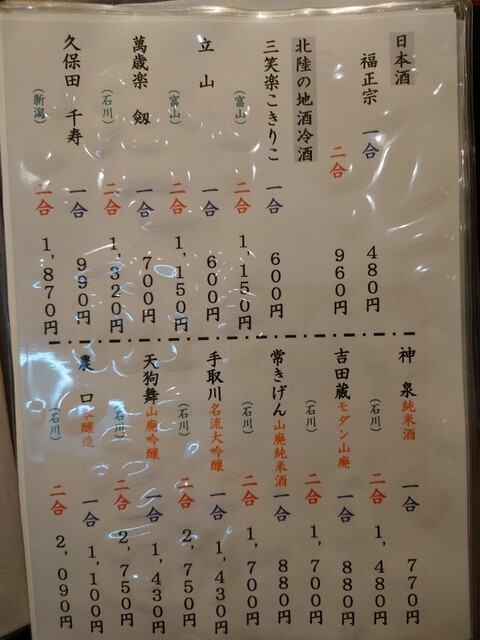 日本酒
福正宗 一合 480円
二合 960円
北陸の地酒冷酒
三笑楽こきりこ 一合 600円
(富山) 二合 1,150円
立山 一合 600円
(富山) 二合 1,150円
萬歳楽 剱 一合 700円
(石川) 二合 1,320円
久保田 千寿 一合 990円
(新潟) 二合 1,870円
神泉 純米酒 一合 770円
(石川) 二合 1,480円
吉田蔵 モダン山廃 一合 880円
(石川) 二合 1,700円
常きげん 山廃純米酒 一合 880円
(石川) 二合 1,700円
手取川 名流大吟醸 一合 1,430円
(石川) 二合 2,750円
天狗舞 山廃吟醸 一合 1,430円
(石川) 二合 2,750円
農口 醸造 一合 1,100円
(石川) 二合 2,090円